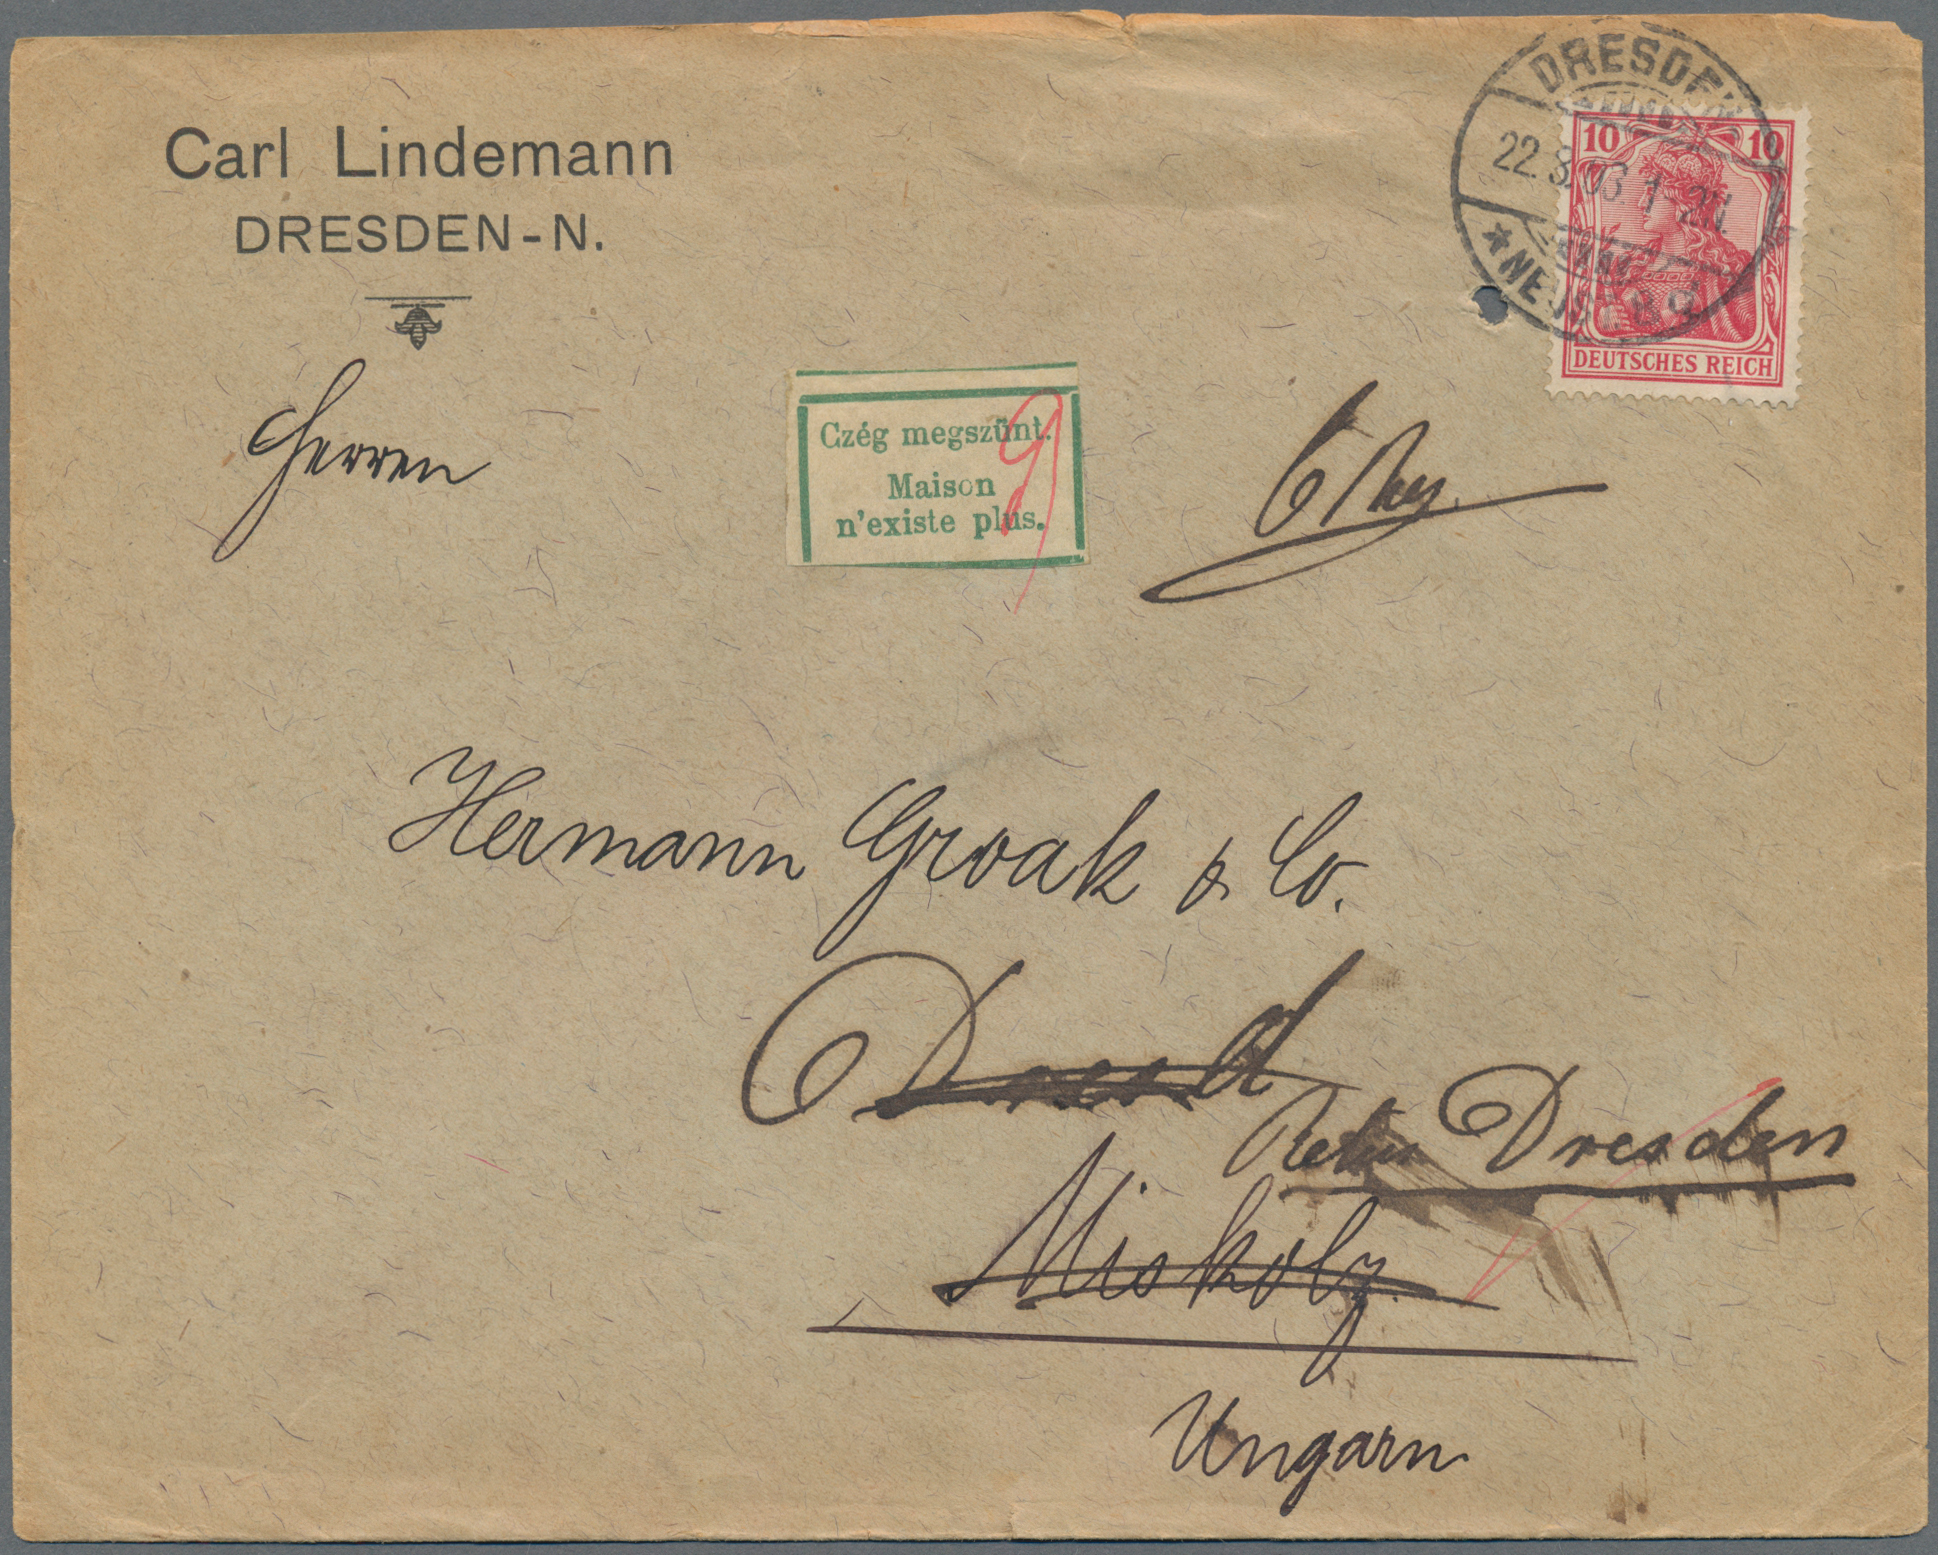 Carl Lindemann
DRESDEN-N.
DRESDEN
22.8.03 1-2N.
*NEUST. 8 q
10 10
DEUTSCHES REICH
Herren
Czég megszünt.
Maison
n'existe plus.
Hermann Groak & Co.
Retur Dresden
Miskolz.
Ungarn